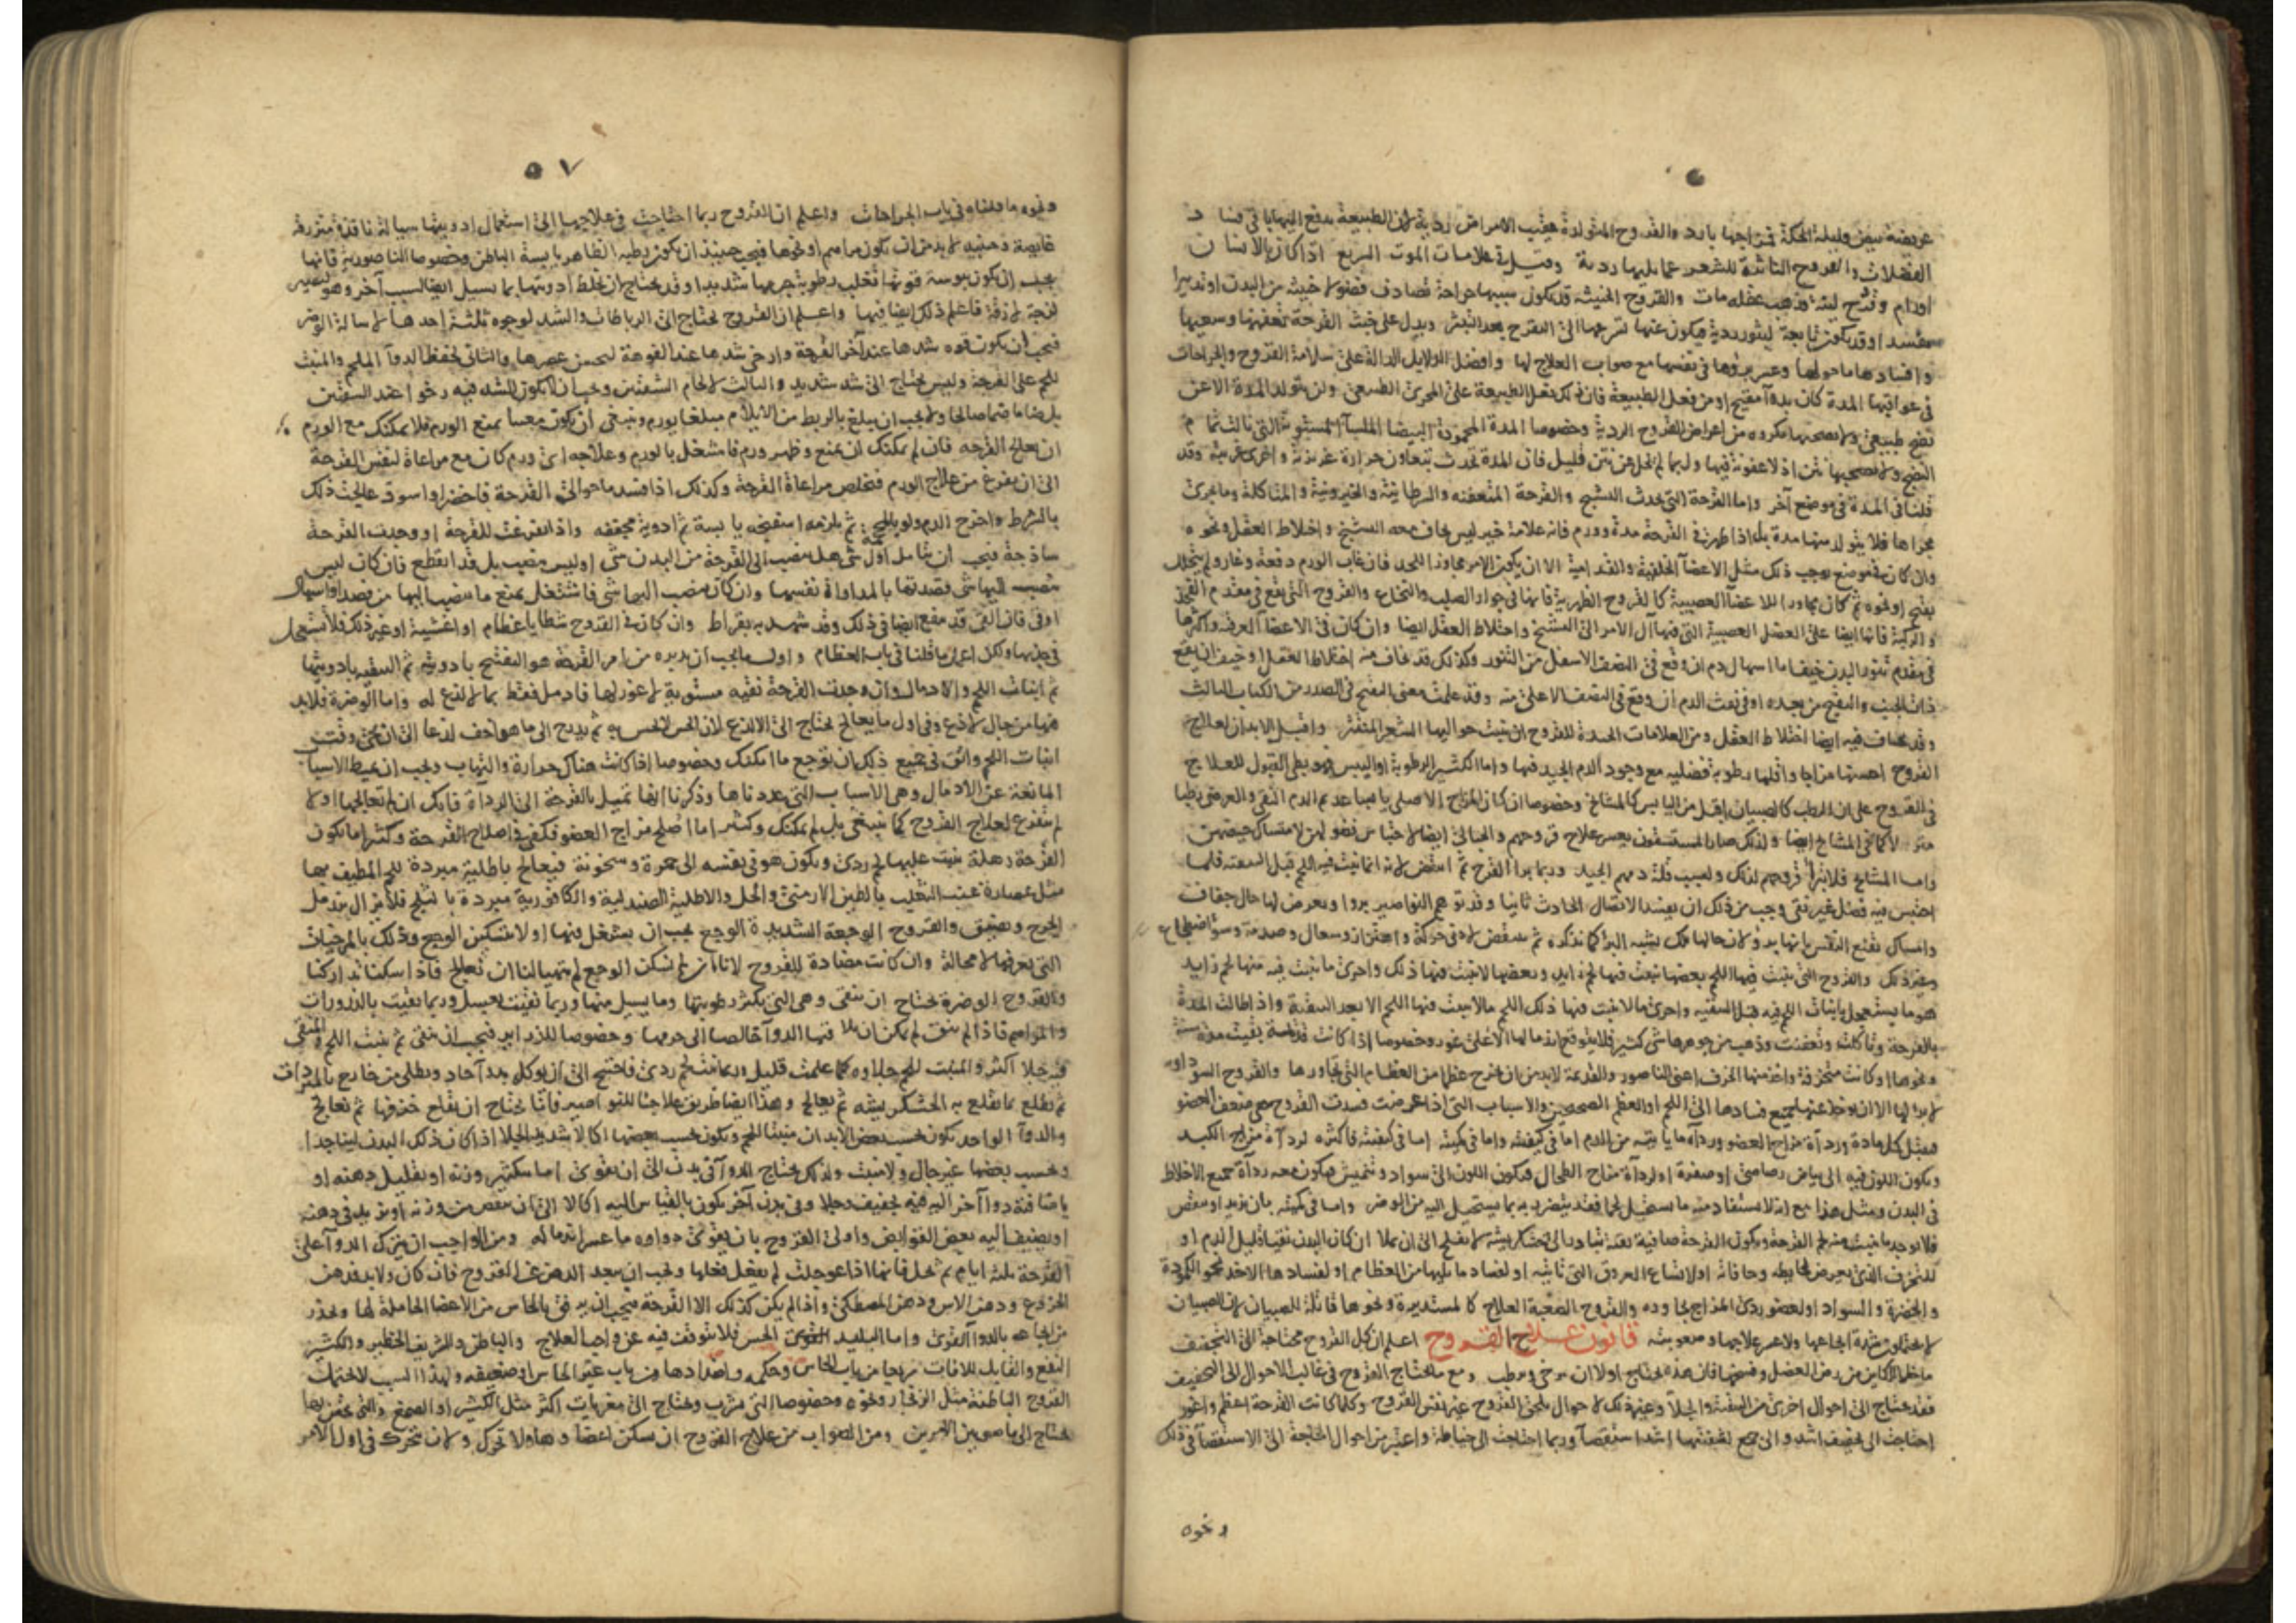 عريضة بيض قليلة الحكة في مزاجها بارد والقروح المتولدة عقيب الامراض ردية لان الطبيعة يدفع اليها باقي فساد
الفضلات والقروح الناثرة للشعر عما يليها ردية وقيل في علامات الموت السريع اذا كان بالانسان
اورام وقروح لينة فذهب عقله مات والقروح الخبيثة قد يكون سببها جراحة تصادف فضولا خبيثة من البدن او تدبيرا
مفسدا وقد يكون تابعة لبثور ردية فيكون عنها لسرعتها الى التقرح بعد التبثر ويدل على خبث القرحة تعفنها وسعيها
وافسادها ما حولها وعسر بروها في نفسها مع صواب العلاج لها وافضل الدلايل الدالة على سلامة القروح والجراحات
في عواقبها المدة كان بدوا مقيح او من فعل الطبيعة فان ذلك بفعل الطبيعة على المجرى الطبيعي ولن يتولد المدة الا عن
نضج طبيعي ولا يصحبها مكروه من اعراض القروح الردية وخصوصا المدة المحمودة البيضا الملسا المستوية التي نالت تمام
النضج ولا يصحبها نتن اذ لا عفونة فيها ولربما لم يخل عن نتن قليل فان المدة تحدث بتعاون حرارة غريزية واخرى غريبة وقد
قلنا في المدة في موضع آخر واما القرحة التي يحدث التشنج والقرحة المتعفنة والسرطانية والخيرونية والمتاكلة وما يجرى
مجراها فلا يتولد منها مدة بل اذا ظهرت في القرحة مدة وورم فانه علامة خير ليس يخاف معه التشنج واختلاط العقل ونحوه
وان كان في موضع يوجب ذلك مثل الاعضا الخلفية والقدامية الا ان يكون الامر مجاوز للحد فان غاب الورم دفعة وغار ولم يتحلل
بقيح او نحوه ثم كان مجاورا للاعضا العصبية كالقروح الظهرية فانها في جوار الصلب والنخاع والقروح التي تقع في مقدم الفخذ
والركبة فانها ايضا على العضل العصبية التي فيها آل الامر الى التشنج واختلاط العقل ايضا وان كان في الاعضا العرقية واكثرها
في مقدم تنور البدن خيف اما اسهال دم ان وقع في النصف الاسفل من التنور وكذلك قد يخاف منه اختلاط العقل او خيف ان يقع
ذات الجنب والتقيح من بعده او في نفث الدم ان وقع في النصف الاعلى منه وقد علمت معنى التقيح في الصدر من الكتاب الثالث
وقد يخاف فيه ايضا اختلاط العقل ومن العلامات الجيدة للقروح ان ينبت حواليها الشعر المنتثر واقبل الابدان لعلاج
القروح احسنها مزاجا واقلها رطوبة فضلية مع وجود الدم الجيد فيها واما الكثير الرطوبة او اليبس فهو بطى القبول للعلاج
في القروح على ان الرطب كالصبيان اقبل من اليابس كالمشايخ وخصوصا ان كان المزاج الاصلي يابسا عديم الدم النقي والعرضي رطبا
مترهلا كما في المشايخ ايضا ولذلك صار المستسقون يعسر علاج قروحهم والحبالى ايضا لاحتباس فضولهن لامتساك حيضهن
واما المشايخ فلا تبرا قروحهم لذلك ولسبب قلة دمهم الجيد وربما برا القرح ثم انتقض لانه انما نبت فيه اللحم قبل التنقية فلما
احتبس فيه فضل غير نقي وجب من ذلك ان يفسد الاتصال الحادث ثانيا وقد توهم النواصير بروا ويعرض لها حال جفاف
وامساك تقنع النفس بانها برؤ لان حالها تلك يشبه البرا كما نذكره ثم ينتقض لادنى حركة واهتزاز وسعال وصدمة وسو اضطجاع
وغير ذلك والقروح التي ينبت فيها اللحم بعضها ينبت فيها لحم زايد وبعضها لا ينبت فيها ذلك واحرى ما ينبت فيه منها لحم زايد
هو ما يستعجل بانبات اللحم فيه قبل التنقية واحرى ما لا ينبت فيها ذلك اللحم ما لا ينبت فيها اللحم الا بعد التنقية واذا طالت المدة
بالقرحة وتاكلت وتعفنت وذهب من جوهرها شي كثير فلا يتوقع اندمالها الا على غور وخصوصا اذا كانت قديمة بقيت مدة سنة
ونحوها او كانت متخزفة واخذ منها الخزف اعني الناصور والقديمة لا بد من ان يخرج عظما من العظام التي تجاورها والقروح السوداوية
لا برا لها الا ان يوخذ عنها جميع فسادها الى اللحم او العظم الصحيحين والاسباب التي اذا عرضت فسدت القروح هي ضعف العضو
فيقبل كل مادة ورداة مزاج العضو ورداه ما ياتيه من الدم اما في كيفيته واما في كميته اما في كيفيته فاكثره لرداة مزاج الكبد
ويكون اللون فيه الى بياض رصاصي او صفرة او لرداة مزاج الطحال فيكون اللون الى سواد ونمش فيكون معه رداة جميع الاخلاط
في البدن ومثل هذا مع انه لا يستفاد منه ما يستحيل لحما فقد يتضرر به بما يستحيل اليه من الوضر واما في كميته بان يزيد او ينقص
فلا يوجد ما ينبت منه لحم القرحة ويكون القرحة صافية نقية تبادر الى خشكريشة لا يفلح الى ان يملا ان كان البدن نقيا قليل الدم او
للتخزف الذي يعرض لحايطه وحافاته او لاتساع العروق التي تاتيه او لفساد ما يليها من العظام او لفسادها الاخذ نحو الكمودة
والخضرة والسواد او لعضو ردى المزاج يجاوره والقروح الصعبة العلاج كالمستديرة ونحوها قاتلة للصبيان لان الصبيان
لا يحتملون شدة ايجاعها ولا عسر علاجها وصعوبته قانون علاج القروح اعلم ان كل القروح محتاجة الى التجفيف
ما خلا الكاين من رض العضل وفسخها فان هذه يحتاج اولا ان يرخى ويرطب ومع ما يحتاج القروح في غالب الاحوال الى التجفيف
فقد يحتاج الى احوال اخرى من التنقية والجلا وغير ذلك لاحوال تلحق القروح غير نفس القروح وكلما كانت القرحة اعظم واغور
احتاجت الى تجفيف اشد والى جمع لشفتيها اشد استقصا وربما احتاجت الى خياطة واعتبر من احوال الحاجة الى الاستقصا في ذلك
ونحوه
٥٧
ونحوه ما قلناه في باب الجراحات واعلم ان القروح ربما احتاجت في علاجها الى استعمال ادويتها سيالة نافذة متزرقة
غايصة وحينيذ لا بد من ان تكون مراهم او نحوها فيجب حينيذ ان يكون رطبه الظاهر يابسة الباطن وخصوصا الناصورية فانها
يجب ان يكون يبوسة قوتها تغلب رطوبة جرمها شديدا وقد يحتاج ان تخلط ادويتها بما يسيل ايضا لسبب آخر وهو لتصير
لزجة لازقة فاعلم ذلك ايضا فيها واعلم ان القروح تحتاج الى الرباطات والشد لوجوه ثلثة احدها لاسالة الوضر
فيجب ان يكون قوه شدها عند آخر القرحة وارخى شدها عند الفوهة ليحسن عصرها والثاني لحفظ الدوا الملحم والمنبت
للحم على القرحة وليس يحتاج الى شد شديد والثالث لالحام الشفتين ويجب ان لا يكون الشد فيه رخوا عند الشفتين
بل ضاما ضما صالحا ولا يجب ان يبلغ بالربط من الايلام مبلغا يورم وينبغي ان يكون معينا بمنع الورم فلا يمكنك مع الورم
ان يعالج القرحه فان لم يمكنك ان يمنع وظهر ورم فاشتغل بالورم وعلاجه اى ورم كان مع مراعاة لنفس القرحة
الى ان يفرغ من علاج الورم فتخلص مراعاة القرحة وكذلك اذا فسد ما حوالى القرحة فاخضر او اسود عالجت ذلك
بالشرط واخرج الدم ولو بالمحجمة ثم يلزمه اسفنجه يابسة ثم ادوية مجففه واذا تفرغت للقرحة او وجدت القرحة
ساذجة فيجب ان يتامل اول شي هل ينصب الى القرحة من البدن شي او ليس ينصب بل قد انقطع فان كان ليس
ينصب اليها شي قصدتها بالمداواة نفسها وان كان ينصب اليها شي فاشتغل بمنع ما ينصب اليها من فصد او اسهال
او قي فان القي قد ينفع ايضا في ذلك وقد شهد به بقراط وان كان في القروح شظايا عظام او اغشية او غير ذلك فلا تستعجل
في جذبها ولكن اعمل ما قلنا في باب العظام واول ما يجب ان يدبره من امر القرحة هو التقيح بادويته ثم التنقيه بادويتها
ثم انبات اللحم والادمال وان وجدت القرحة نقيه مستوية لا غور لها فادمل فقط بما لا لذع له واما الوضرة فلا بد
فيها من جال لاذع وفي اول ما يعالج يحتاج الى الالذع لان الحس لا يحس به ثم يدرج الى ما هو اخف لذعا الى ان يجي وقت
انبات اللحم واتق في جميع ذلك ان توجع ما امكنك وخصوصا اذا كانت هناك حرارة والتهاب ويجب ان يميط الاسباب
المانعة عن الادمال وهي الاسباب التي عددناها وذكرنا انها تميل بالقرحة الى الرداة فانك ان لم تعالجها اولا
لم تتفرغ لعلاج القروح كما ينبغي بل لم يمكنك وكثيرا ما اصلح مزاج العضو فكفى في اصلاح القرحة وكثيرا ما يكون
القرحة رهلة ينبت عليها لحم ردى ويكون هو في نفسه الى حمرة وسخونة فيعالج باطلية مبردة للحم المطيف بها
مثل عصارة عنب الثعلب بالطين الارمني والخل والاطلية الصندلية والكافورية مبردة بالثلج فلا يزال يندمل
الجرح ويضيق والقروح الوجعة الشديدة الوجع يجب ان يشتغل فيها اولا بتسكين الوجع وذلك بالمرخيات
التي تعرفها لا محالة وان كانت مضادة للقروح لانا ما لم نسكن الوجع لم يتهيا لنا ان نعالج فاذا سكناه تداركنا
والقروح الوضرة تحتاج ان ينقى وهي التي يكثر رطوبتها وما يسيل منها وربما نقيت بعسل وربما نقيت بالذرورات
والمراهم فاذا لم ينق لم يمكن ان يلاقيها الدوا خالصا الى جرمها وخصوصا للذراير فيجب ان ينقى ثم ينبت اللحم والمنقى
فيه جلا اكثر والمنبت للحم جلاوه كما علمت قليل وربما نبت لحم ردى فاحتيج الى ان يوكل بدوا حاد ويطلى من خارج بالمبردات
ثم يقلع بما يقلع به الخشكريشة ثم يعالج وهذا ايضا طريق علاجنا للنواصير فانا نحتاج ان نقلع خزفها ثم نعالج
والدوا الواحد يكون بحسب بعض الابدان منبتا للحم ويكون بحسب بعضها اكالا شديد الجلا اذا كان ذلك البدن لينا جدا
وبحسب بعضها غير جال ولا منبت ولذلك يحتاج الدوا في بدن الى ان يقوى اما بتكثير وزنه او بتقليل دهنه او
باضافة دوا آخر اليه فيه تجفيف وجلا وفي بدن آخر يكون بالقياس اليه اكالا الى ان ينقص من وزنه او يزيد في دهنه
او يضيف اليه بعض القوابض واولى القروح بان يقوى دواوه ما عسر اندماله ومن الواجب ان يترك الدوا على
القرحة ثلثه ايام ثم تحل فانها اذا عوجلت لم يفعل فعلها ويجب ان يبعد الدهن عن القروح فان كان ولا بد فدهن
الخروع ودهن الاس ودهن المصطكى واذا لم يكن كذلك الا القرحة فيجب ان يرفق بالحاس من الاعضا الحاملة لها ويحذر
من ايجاعه بالدوا القوى واما البليد الحس فلا يتوقف فيه عن واجب العلاج والباطن والشريف الخطير والكثير
النفع والقابل للافات سريعا من باب الحاس وحكمه واضدادها من باب غير الحاس او ضعيفه ولهذا السبب لا يحتملت
القروح الباطنة مثل الزنجار ونحوه وخصوصا التي تشرب ويحتاج الى مغريات اكثر مثل الكثيرا او الصمغ والتي يحقن بها
يحتاج الى ما هو بين الامرين ومن الصواب من علاج القروح ان يسكن اعضاوها ولا تحرك ولا ان تتحرك في اول الامر